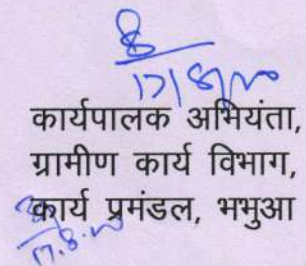 17/8/20
कार्यपालक अभियंता,
ग्रामीण कार्य विभाग,
कार्य प्रमंडल, भभुआ
17.8.20